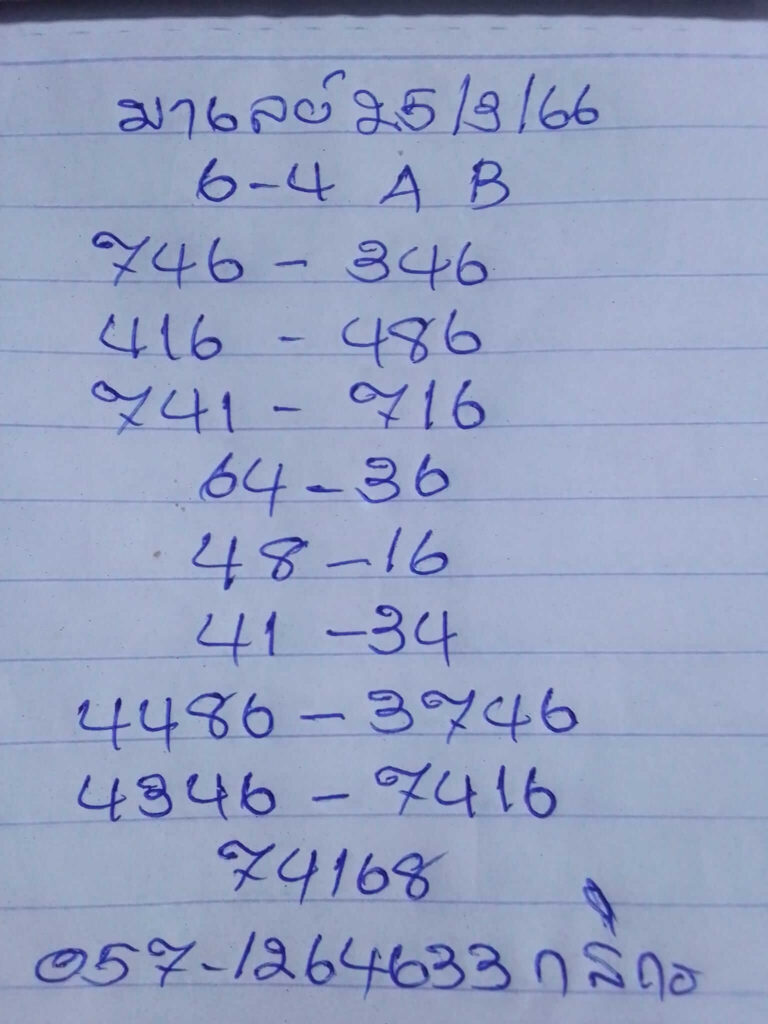 มาเลย์ 25/3/66
6-4 A B
746 - 346
416 - 486
741 - 716
64 - 36
48 - 16
41 - 34
4486 - 3746
4346 - 7416
74168
057-1264633